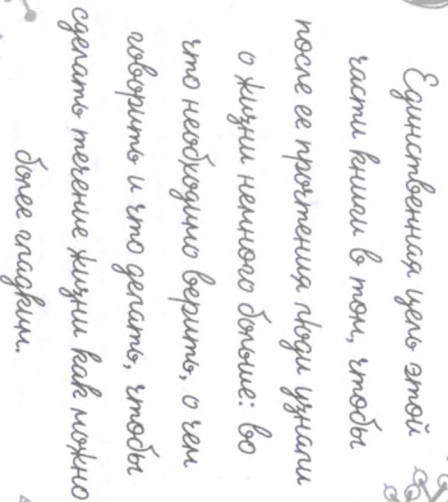 Единственная цель этой
части книги в том, чтобы
после ее прочтения люди узнали
о жизни немного больше: во
что необходимо верить, о чем
говорить и что делать, чтобы
сделать течение жизни как можно
более гладким.